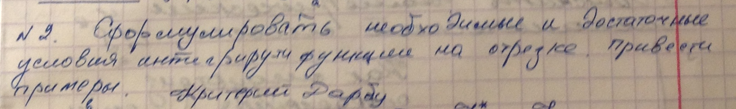 № 2. Сформулировать необходимые и достаточные
условия интегрируем функции на отрезке. привести
примеры. Критерий Дарбу